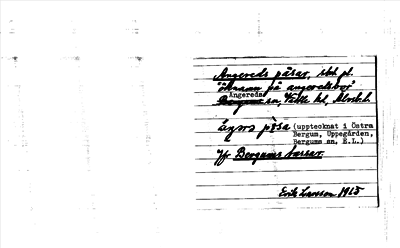 Angereds påsar, sbst. pl.
öknamn på angeredsbor
Angereds
Bergums sn, Vättle hd, Älvsb.l.
(upptecknat i Östra
Bergum, Uppegården,
Bergums sn, E.L.)
Jfr Bergums bassar.
Erik Larsson 1915